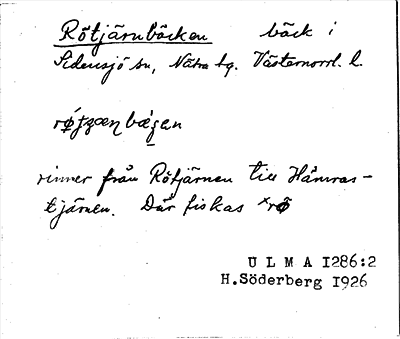 Rötjärnbäcken bäck i
Sidensjö sn, Nätra tg. Västernorrl. l.
rinner från Rötjärnen till Hämras-
tjärnen. Där fiskas ˣrö
U L M A 1286:2
H.Söderberg 1926